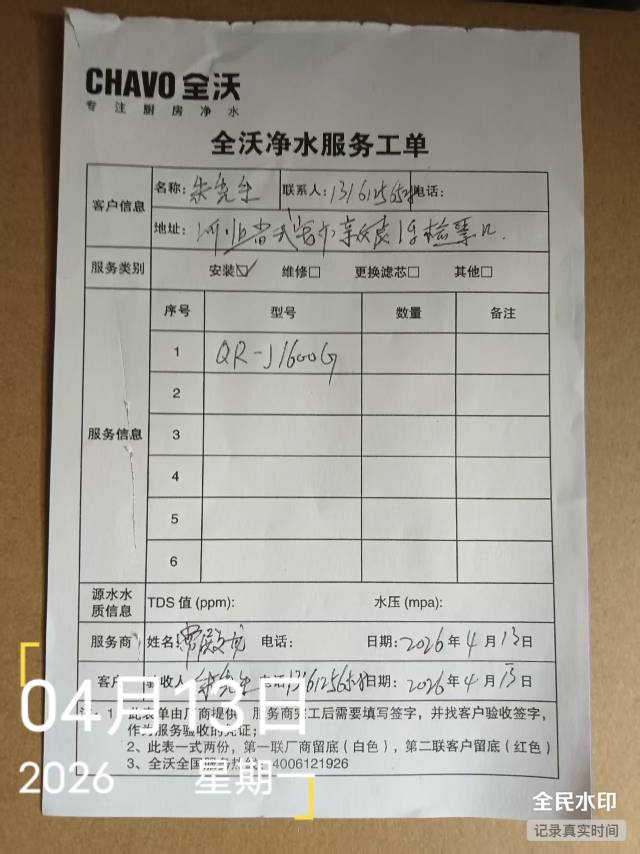 CHAVO 全沃
专注厨房净水
全沃净水服务工单
客户信息
名称: 朱先生 联系人: 电话:
地址: 河北省
服务类别 安装☑ 维修□ 更换滤芯□ 其他□
服务信息
序号 型号 数量 备注
1 QR-J1600G
2
3
4
5
6
源水水质信息 TDS 值 (ppm): 水压 (mpa):
服务商 姓名: 电话: 日期: 2026 年 4 月 13 日
客户 验收人 朱先生 电话 日期: 2026 年 4 月 13 日
注: 1、此表单由厂商提供 服务商完工后需要填写签字，并找客户验收签字，
作为服务验收的凭证；
2、此表一式两份，第一联厂商留底（白色），第二联客户留底（红色）
3、全沃全国服务热线: 4006121926
04月13日
2026 星期一
全民水印
记录真实时间